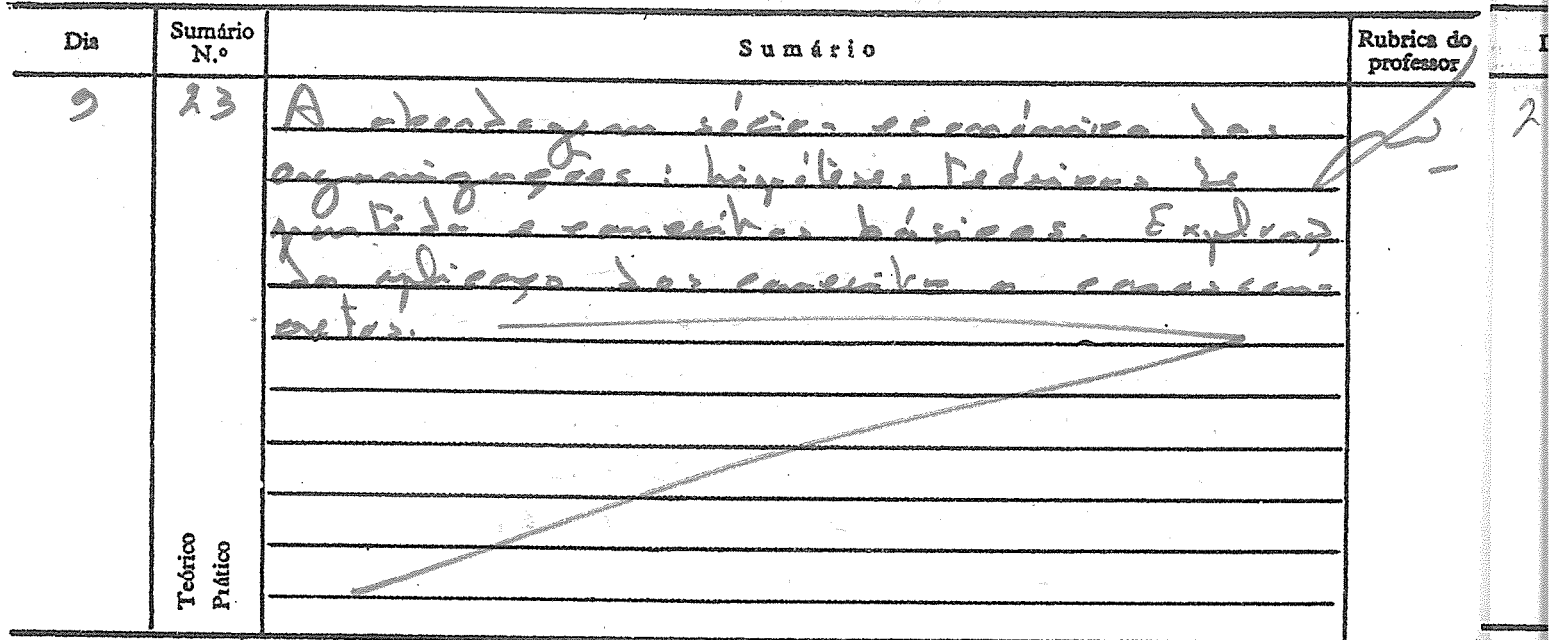 Dia
Sumário N.º
Sumário
Rubrica do professor
9
23
A abordagem sócio-económica das
organizações: hipóteses teóricas de
partida e conceitos básicos. Explicaç
da aplicaço dos conceitos a casos con-
cretos.
Teórico
Prático
2